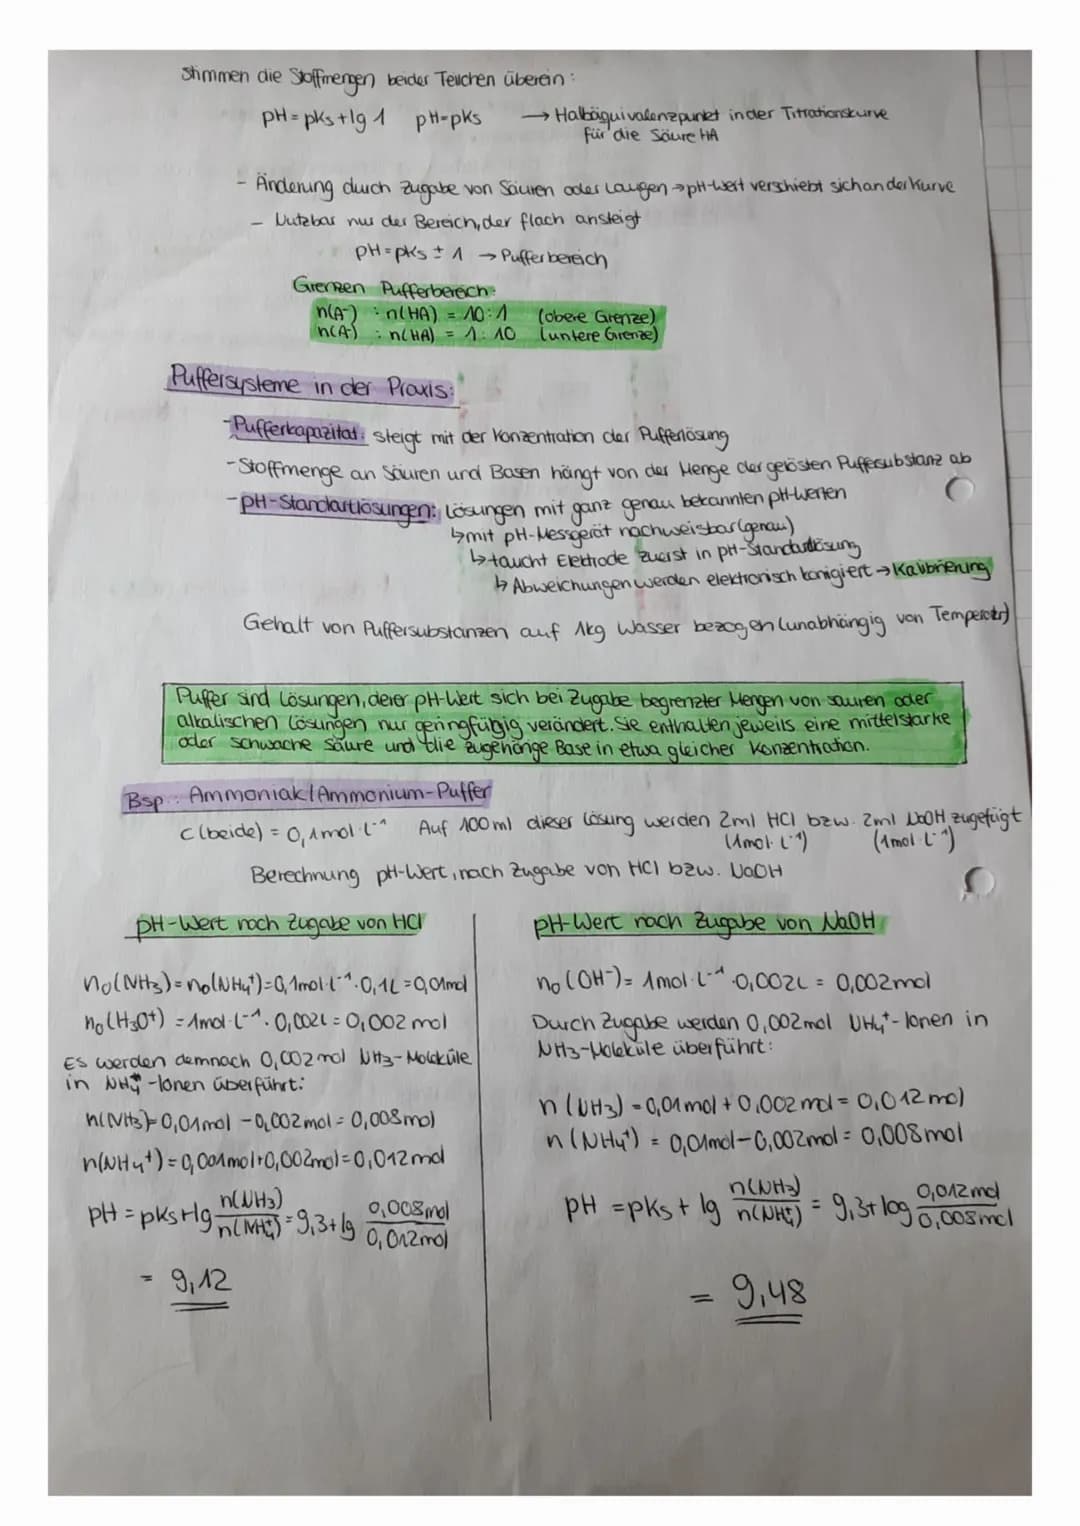 Stimmen die Stoffmengen beider Teilchen überein:
pH = pKs + lg 1 pH=pKs → Halbäquivalenzpunkt in der Titrationskurve
für die Säure HA
- Änderung durch Zugabe von Säuren oder Laugen → pH-Wert verschiebt sich an der Kurve
- Nutzbar nur der Bereich, der flach ansteigt
pH = pKs ± 1 → Pufferbereich
Grenzen Pufferbereich:
n(A⁻) : n(HA) = 10:1 (obere Grenze)
n(A⁻) : n(HA) = 1:10 (untere Grenze)
Puffersysteme in der Praxis:
- Pufferkapazität: steigt mit der Konzentration der Pufferlösung
- Stoffmenge an Säuren und Basen hängt von der Menge der gelösten Puffersubstanz ab
- pH-Standartlösungen: Lösungen mit ganz genau bekannten pH-Werten
↳ mit pH-Messgerät nachweisbar (genau)
↳ taucht Elektrode zuerst in pH-Standardlösung
↳ Abweichungen werden elektronisch korrigiert → Kalibrierung
Gehalt von Puffersubstanzen auf 1kg Wasser bezogen (unabhängig von Temperatur)
Puffer sind Lösungen, derer pH-Wert sich bei Zugabe begrenzter Mengen von sauren oder
alkalischen Lösungen nur geringfügig verändert. Sie enthalten jeweils eine mittelstarke
oder schwache Säure und die zugehörige Base in etwa gleicher Konzentration.
Bsp.: Ammoniak/Ammonium-Puffer
c(beide) = 0,1mol·L⁻¹ Auf 100ml dieser Lösung werden 2ml HCl bzw. 2ml NaOH zugefügt
(1mol·L⁻¹) (1mol·L⁻¹)
Berechnung pH-Wert, nach Zugabe von HCl bzw. NaOH
pH-Wert nach Zugabe von HCl
n₀(NH₃)=n₀(NH₄⁺)=0,1mol·L⁻¹·0,1L=0,01mol
n₀(H₃O⁺) = 1mol·L⁻¹·0,002L = 0,002 mol
Es werden demnach 0,002mol NH₃-Moleküle
in NH₄⁺-Ionen überführt:
n(NH₃)=0,01mol - 0,002mol = 0,008mol
n(NH₄⁺) = 0,001mol+0,002mol=0,012mol
pH = pKs+lg n(NH₃)/n(NH₄⁺) = 9,3+lg 0,008mol/0,012mol
= 9,12
pH-Wert nach Zugabe von NaOH
n₀(OH⁻) = 1mol·L⁻¹·0,002L = 0,002mol
Durch Zugabe werden 0,002mol NH₄⁺-Ionen in
NH₃-Moleküle überführt:
n(NH₃) = 0,01mol + 0,002mol = 0,012mol
n(NH₄⁺) = 0,01mol-0,002mol = 0,008mol
pH = pKs + lg n(NH₃)/n(NH₄⁺) = 9,3+log 0,012mol/0,008mol
= 9,48